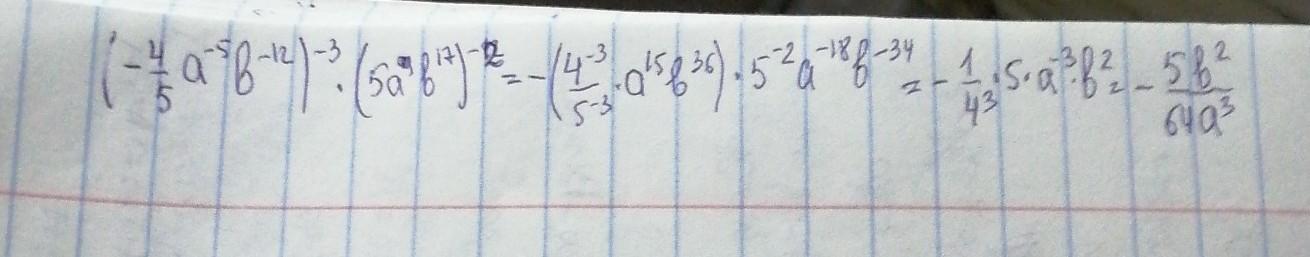 (-4/5 a⁻⁵b⁻¹²)⁻³ · (5a⁹b¹⁷)⁻² = -(4⁻³/5⁻³ · a¹⁵b³⁶) · 5⁻²a⁻¹⁸b⁻³⁴ = -1/4³ · 5 · a⁻³ · b² = -5b²/64a³